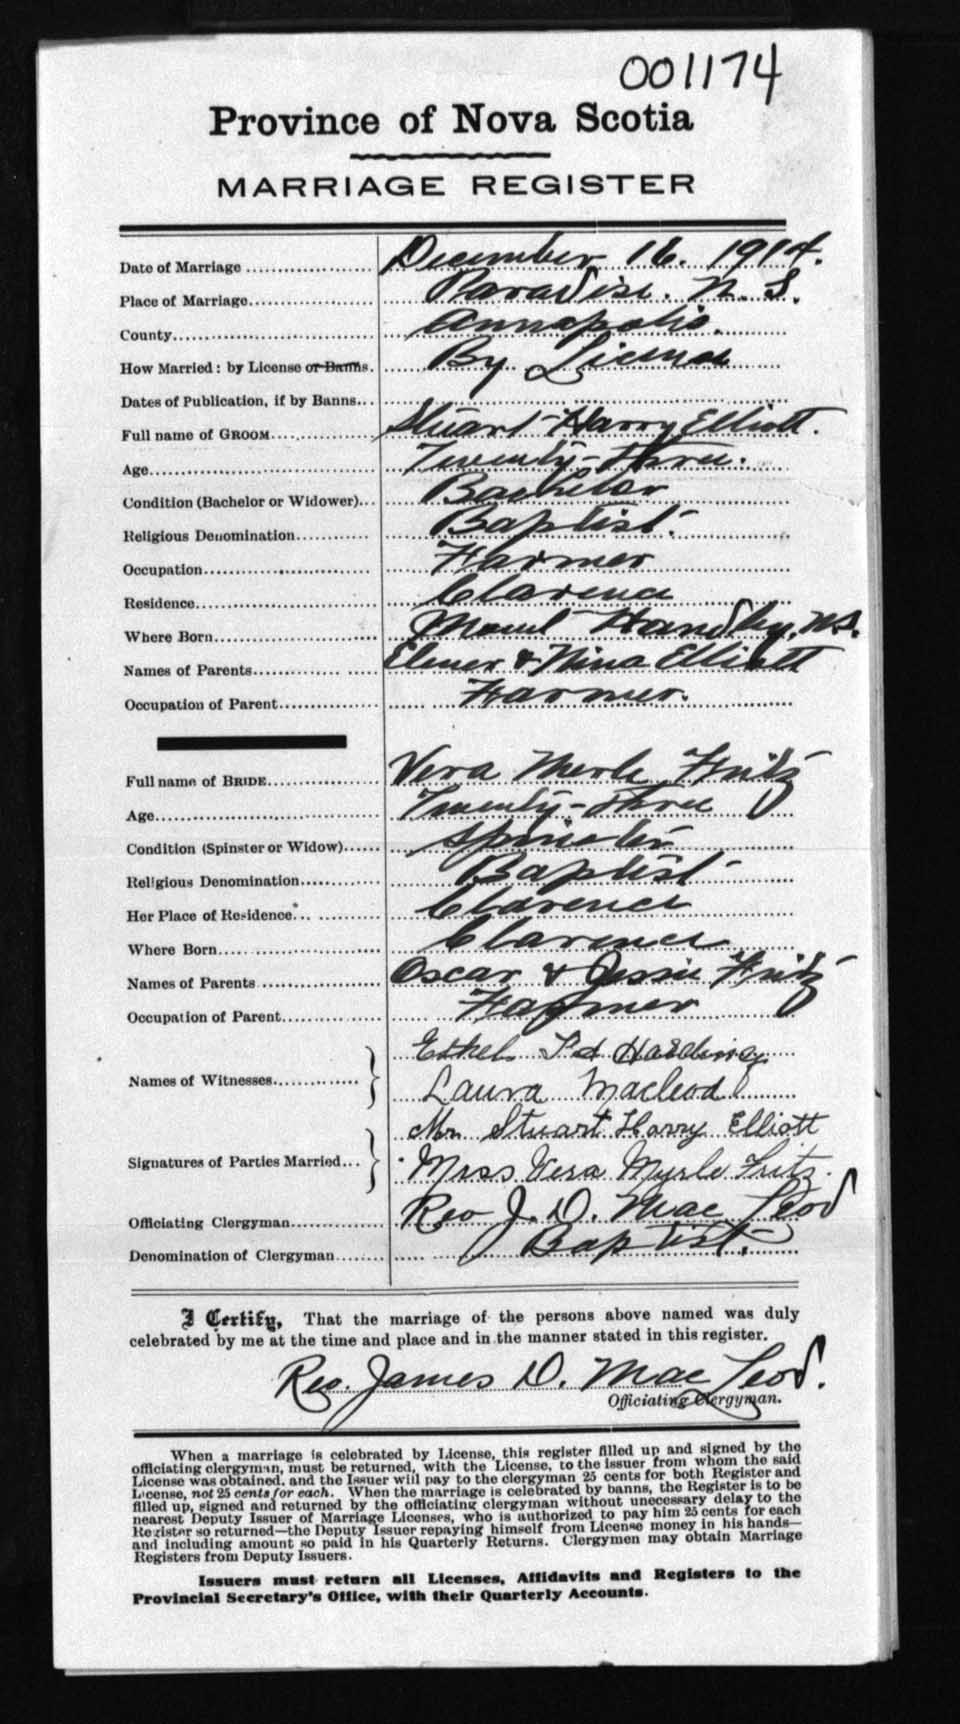 001174
Province of Nova Scotia
MARRIAGE REGISTER
Date of Marriage December 16. 1914.
Place of Marriage Paradise. N. S.
County Annapolis.
How Married: by License or Banns. By License
Dates of Publication, if by Banns
Full name of GROOM Stuart Harry Elliott.
Age Twenty-three.
Condition (Bachelor or Widower) Bachelor
Religious Denomination Baptist.
Occupation Farmer
Residence Clarence
Where Born Mount Handley, N.S.
Names of Parents Elmer & Nina Elliott
Occupation of Parent Farmer.
Full name of BRIDE Vera Merle Fritz
Age Twenty-three
Condition (Spinster or Widow) Spinster
Religious Denomination Baptist
Her Place of Residence Clarence
Where Born Clarence
Names of Parents Oscar & Jessie Fritz
Occupation of Parent Farmer
Names of Witnesses Ethel Harding
Laura Macleod
Signatures of Parties Married Mr. Stuart Harry Elliott
Miss Vera Myrle Fritz.
Officiating Clergyman Rev J. D. Mac Leod
Denomination of Clergyman Baptist.
I Certify, That the marriage of the persons above named was duly
celebrated by me at the time and place and in the manner stated in this register.
Rev. James D. Mac Leod.
Officiating Clergyman.
When a marriage is celebrated by License, this register filled up and signed by the
officiating clergyman, must be returned, with the License, to the issuer from whom the said
License was obtained, and the Issuer will pay to the clergyman 25 cents for both Register and
License, not 25 cents for each. When the marriage is celebrated by banns, the Register is to be
filled up, signed and returned by the officiating clergyman without unnecessary delay to the
nearest Deputy Issuer of Marriage Licenses, who is authorized to pay him 25 cents for each
Register so returned—the Deputy Issuer repaying himself from License money in his hands—
and including amount so paid in his Quarterly Returns. Clergymen may obtain Marriage
Registers from Deputy Issuers.
Issuers must return all Licenses, Affidavits and Registers to the
Provincial Secretary's Office, with their Quarterly Accounts.